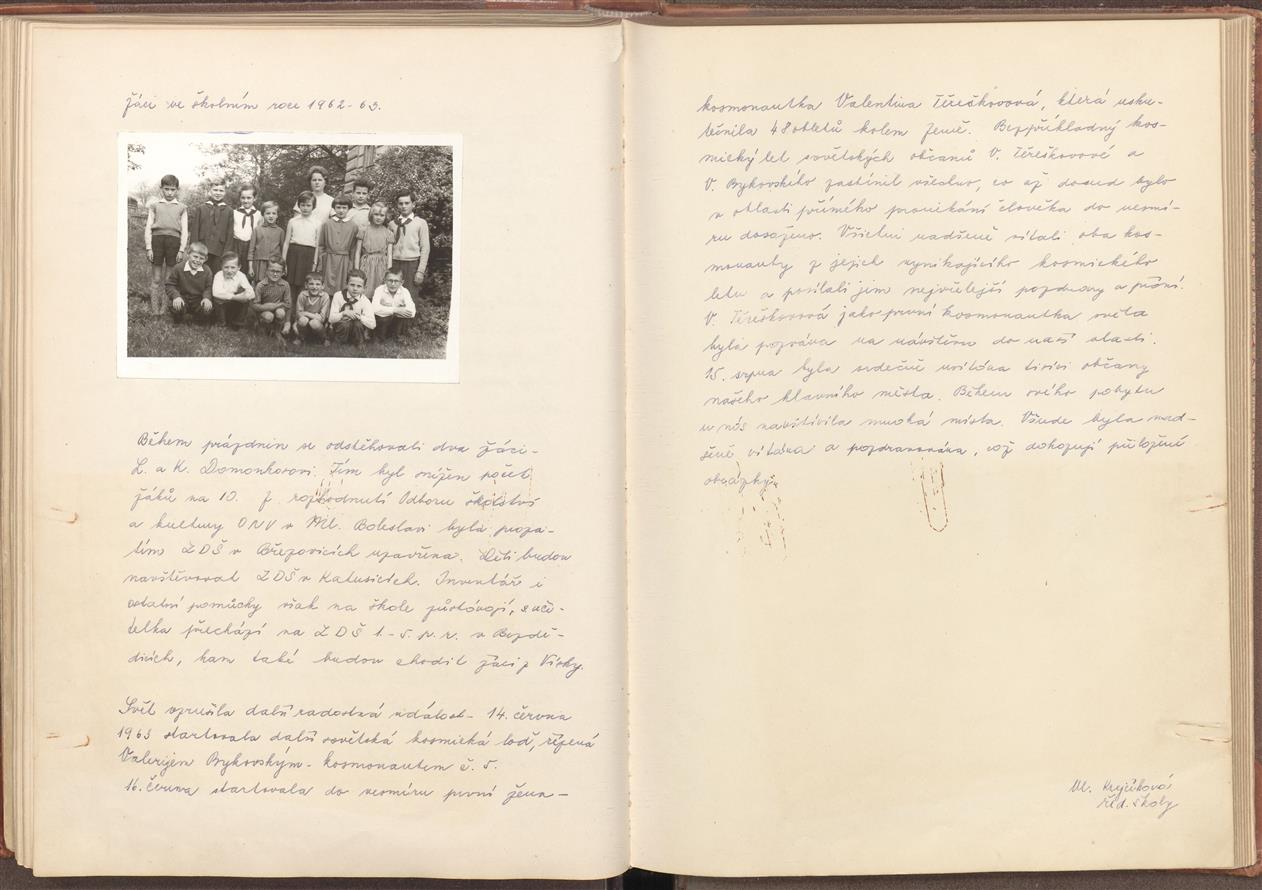 Žáci ve školním roce 1962-63.
Během prázdnin se odstěhovali dva žáci -
L. a K. Domonkosovi. Tím byl snížen počet
žáků na 10. Z rozhodnutí Odboru školství
a kultury ONV v Ml. Boleslavi byla proza-
tím ZDŠ v Březovicích uzavřena. Děti budou
navštěvovat ZDŠ v Katusicích. Inventář i
ostatní pomůcky však na škole zůstávají, s uči-
telka přechází na ZDŠ 1.-5. p. r. v Bezdě-
dicích, kam také budou chodit žáci z Vísky.
Svět vzrušila další radostná událost - 14. června
1963 startovala další sovětská kosmická loď, řízená
Valerijem Bykovským - kosmonautem č. 5.
16. června startovala do vesmíru první žena -
kosmonautka Valentina Těreškovová, která usku-
tečnila 48 obletů kolem Země. Bezpříkladný kos-
mický let sovětských občanů V. Těreškovové a
V. Bykovského zastínil všechno, co až dosud bylo
v oblasti přímého pronikání člověka do vesmí-
ru dosaženo. Všichni nadšeně vítali oba kos-
monauty z jejich vynikajícího kosmického
letu a posílali jim nejvřelejší pozdravy a přání.
V. Těreškovová jako první kosmonautka světa
byla pozvána na návštěvu do naší vlasti.
15. srpna byla srdečně uvítána tisíci občany
našeho hlavního města. Během svého pobytu
u nás navštívila mnohá místa. Všude byla nad-
šeně vítána a pozdravována, což dokazují přiložené
obrázky.
Vl. Krejčíková
řed. školy